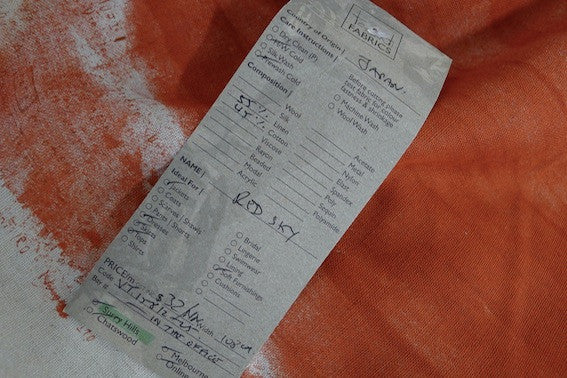 FABRICS
Country of Origin | JAPAN.
Care Instructions |
Dry Clean (P)
Cold
Silk Wash
Handwash Cold
Before cutting please
test fabric for colour
fastness & shrinkage
Machine Wash
Wool Wash
Composition |
Wool
55% Silk
45% Linen
Cotton
Viscose
Rayon
Beaded
Metal
Acrylic
Acetate
Metal
Nylon
Elast
Spandex
Poly
Sequin
Polyamide
NAME | RED SKY
Ideal For |
Jackets
Coats
Scarves / Shawls
Pants / Shorts
Dresses
Skirts
Tops
Shirts
Bridal
Lingerie
Swimwear
Lining
Soft Furnishings
Cushions
PRICE/m $
Code
Width
IN THE OFFICE
Surry Hills
Chatswood
Melbourne
Online